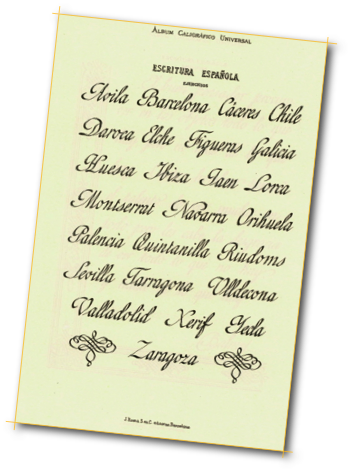 ÁLBUM CALIGRÁFICO UNIVERSAL
ESCRITURA ESPAÑOLA
EJERCICIOS
Ávila Barcelona Cáceres Chile
Daroca Elche Figueras Galicia
Huesca Ibiza Jaen Lorca
Montserrat Navarra Orihuela
Palencia Quintanilla Riudoms
Sevilla Tarragona Ulldecona
Valladolid Xerif Yeda
Zaragoza